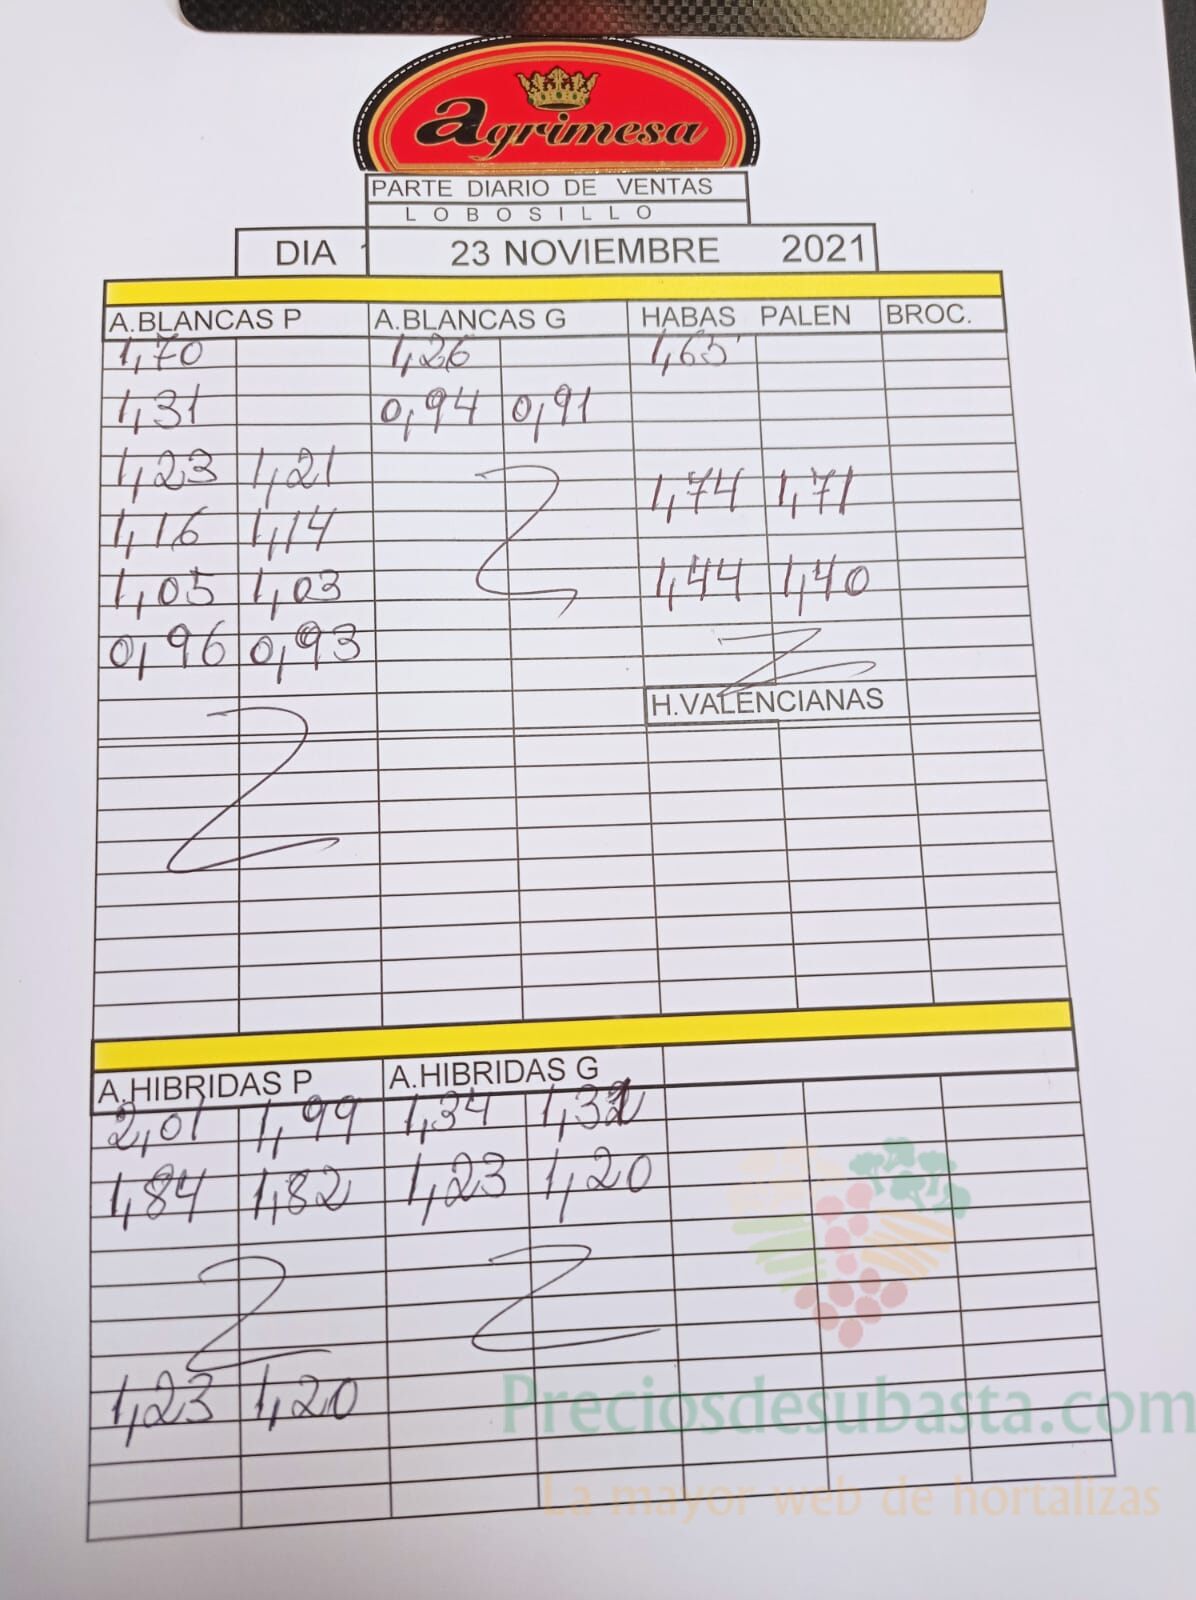 agrimesa
PARTE DIARIO DE VENTAS
LOBOSILLO
DIA 23 NOVIEMBRE 2021
A.BLANCAS P A.BLANCAS G HABAS PALEN BROC.
1,70 1,26 1,65
1,31 0,94 0,91
1,23 1,21 1,74 1,71
1,16 1,14
1,05 1,03 1,44 1,40
0,96 0,93
H.VALENCIANAS
A.HIBRIDAS P A.HIBRIDAS G
2,01 1,99 1,34
1,84 1,82 1,23 1,20
1,23 1,20
Preciosdesubasta.com
La mayor web de hortalizas